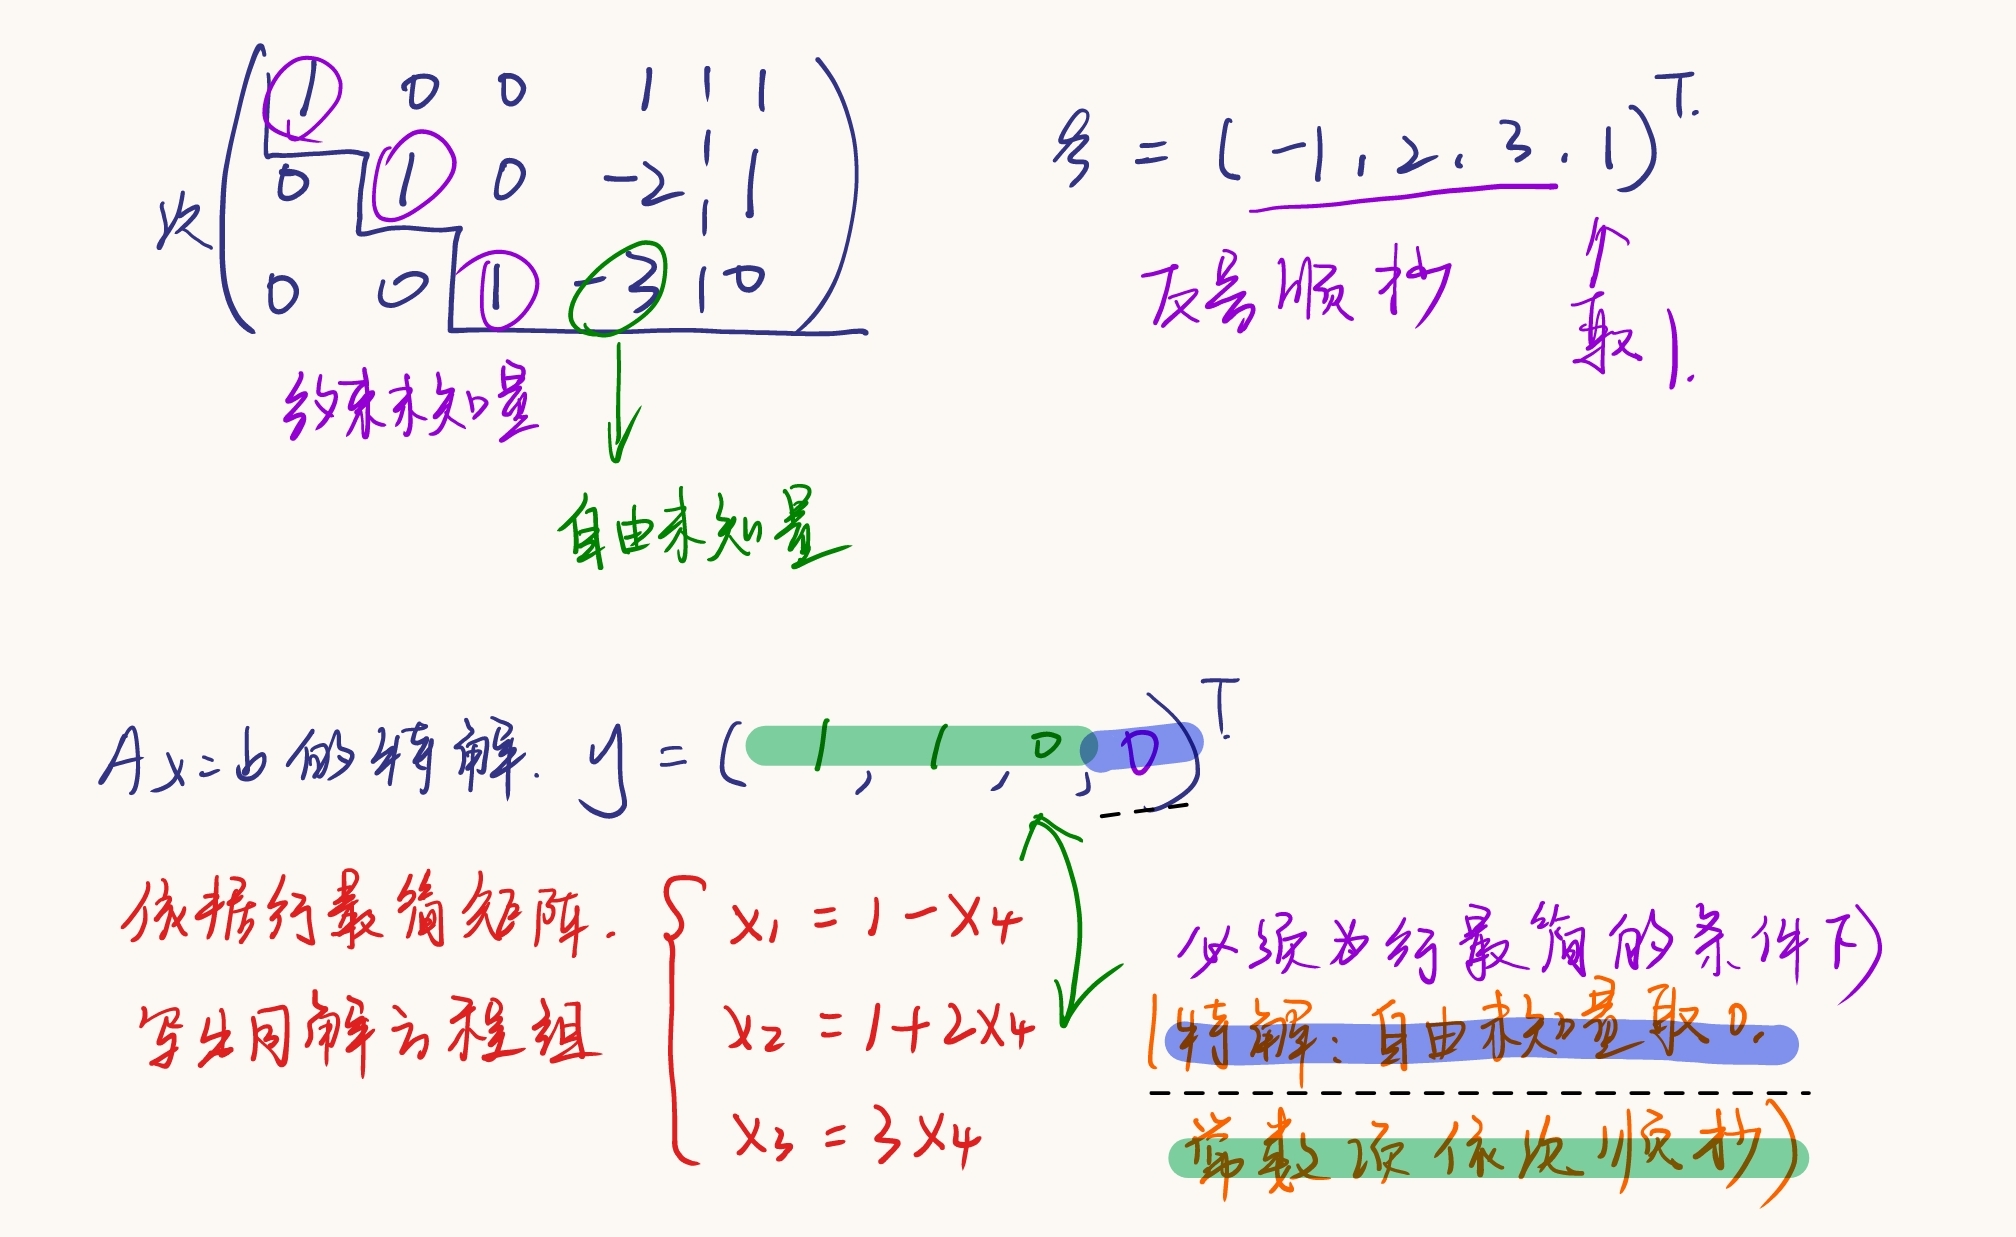 次
1 0 0 1 ¦ 1
0 1 0 -2 ¦ 1
0 0 1 -3 ¦ 0
约束未知量
自由未知量
ξ = (-1, 2, 3, 1)ᵀ.
反号顺抄
↑
取1.
Ax=b 的特解. y = (1, 1, 0, 0)ᵀ.
依据行最简矩阵.
写出同解方程组
x₁ = 1 - x₄
x₂ = 1 + 2x₄
x₃ = 3x₄
必须为行最简的条件下)
(特解: 自由未知量取0.
常数项依次顺抄)